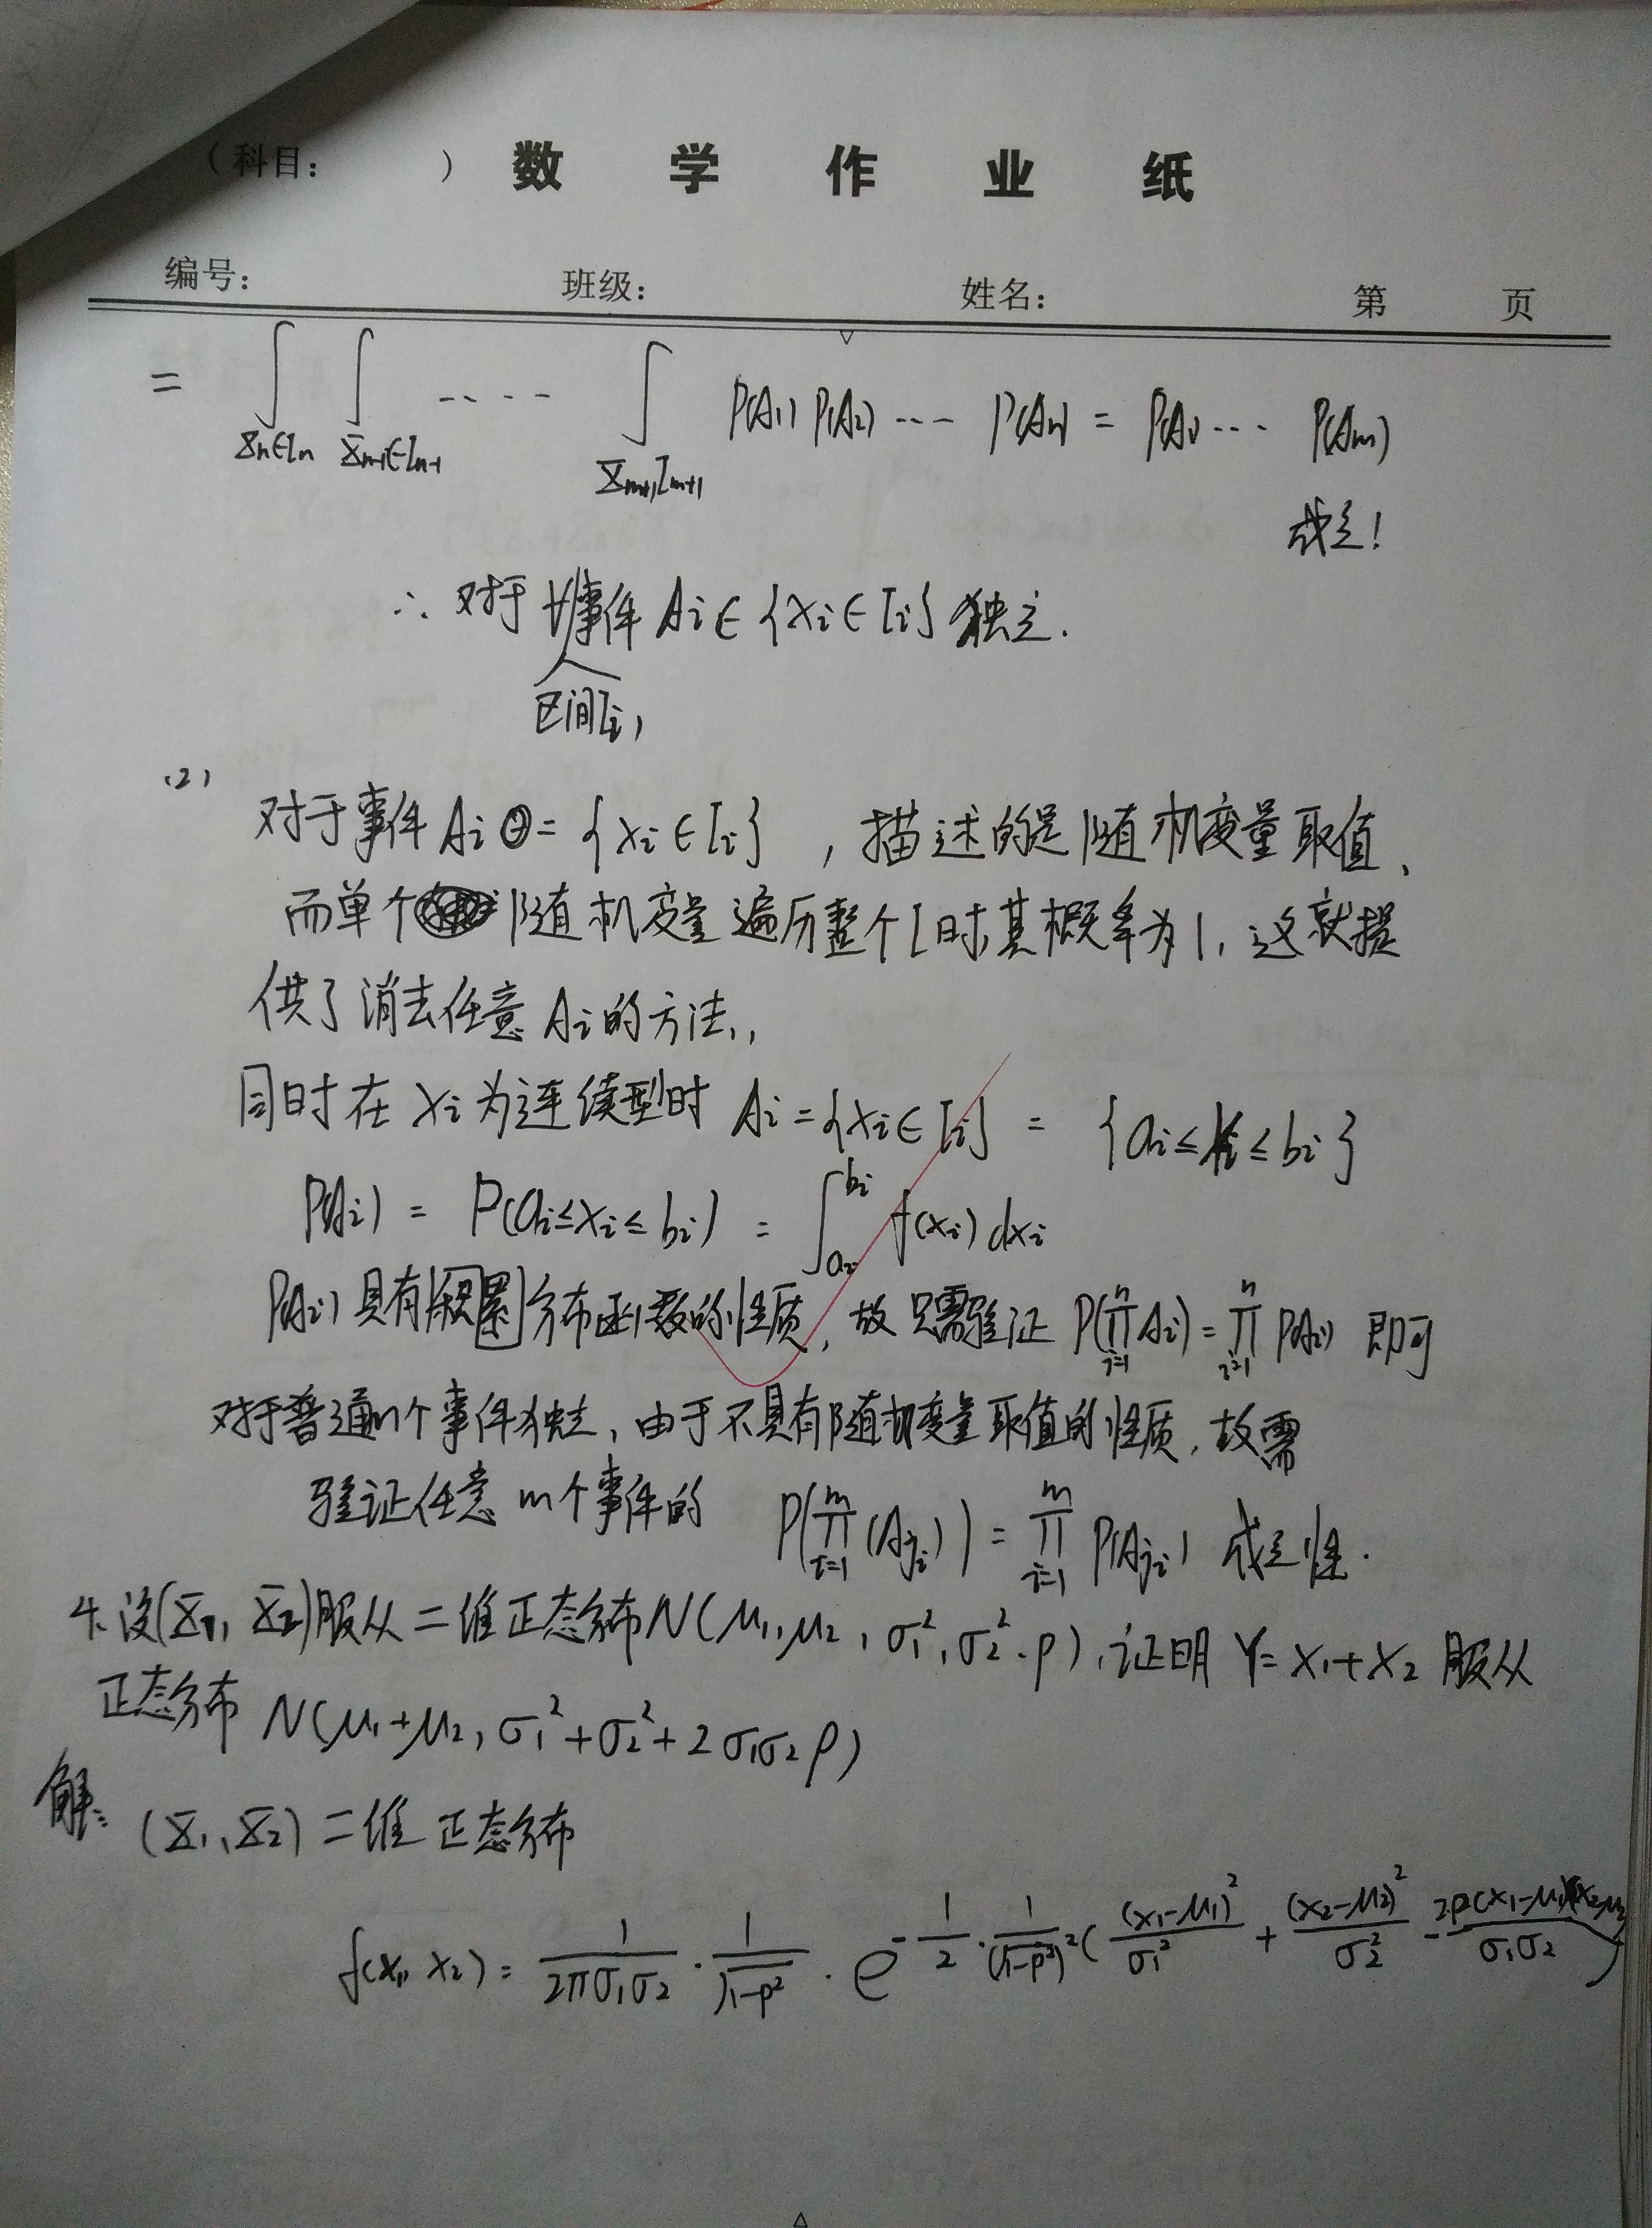 （科目： ） 数 学 作 业 纸
编号： 班级： 姓名： 第 页
= ∫_{X_n∈I_n} ∫_{X_{n-1}∈I_{n-1}} ---- ∫_{X_{m+1}I_{m+1}} P(A_1) P(A_2) --- P(A_n) = P(A_1) --- P(A_m)
成立!
∴ 对于∀事件 A_i ∈ {X_i ∈ I_i} 独立.
区间I_i,
(2)
对于事件 A_i = {X_i ∈ I_i} , 描述的是随机变量取值,
而单个随机变量遍历整个I时其概率为1, 这就提
供了消去任意 A_i 的方法,,
同时在 X_i 为连续型时 A_i = {X_i ∈ I_i} = {a_i ≤ X_i ≤ b_i}
P(A_i) = P(a_i ≤ X_i ≤ b_i) = ∫_{a_i}^{b_i} f(x_i) dx_i
P(A_i) 具有积累分布函数的性质, 故只需验证 P(∏_{i=1}^{n} A_i) = ∏_{i=1}^{n} P(A_i) 即可
对于普通n个事件独立, 由于不具有随机变量取值的性质, 故需
验证任意 m个事件的 P(∏_{i=1}^{m} (A_{j_i})) = ∏_{i=1}^{m} P(A_{j_i}) 成立性.
4. 设(X_1, X_2)服从二维正态分布N(μ_1, μ_2, σ_1^2, σ_2^2, ρ), 证明 Y = X_1 + X_2 服从
正态分布 N(μ_1 + μ_2, σ_1^2 + σ_2^2 + 2σ_1σ_2ρ)
解: (X_1, X_2) 二维 正态分布
f(x_1, x_2) = \frac{1}{2πσ_1σ_2} · \frac{1}{\sqrt{1-ρ^2}} · e^{-\frac{1}{2} · \frac{1}{(\sqrt{1-ρ^2})^2} (\frac{(x_1-μ_1)^2}{σ_1^2} + \frac{(x_2-μ_2)^2}{σ_2^2} - \frac{2ρ(x_1-μ_1)(x_2-μ_2)}{σ_1σ_2})}